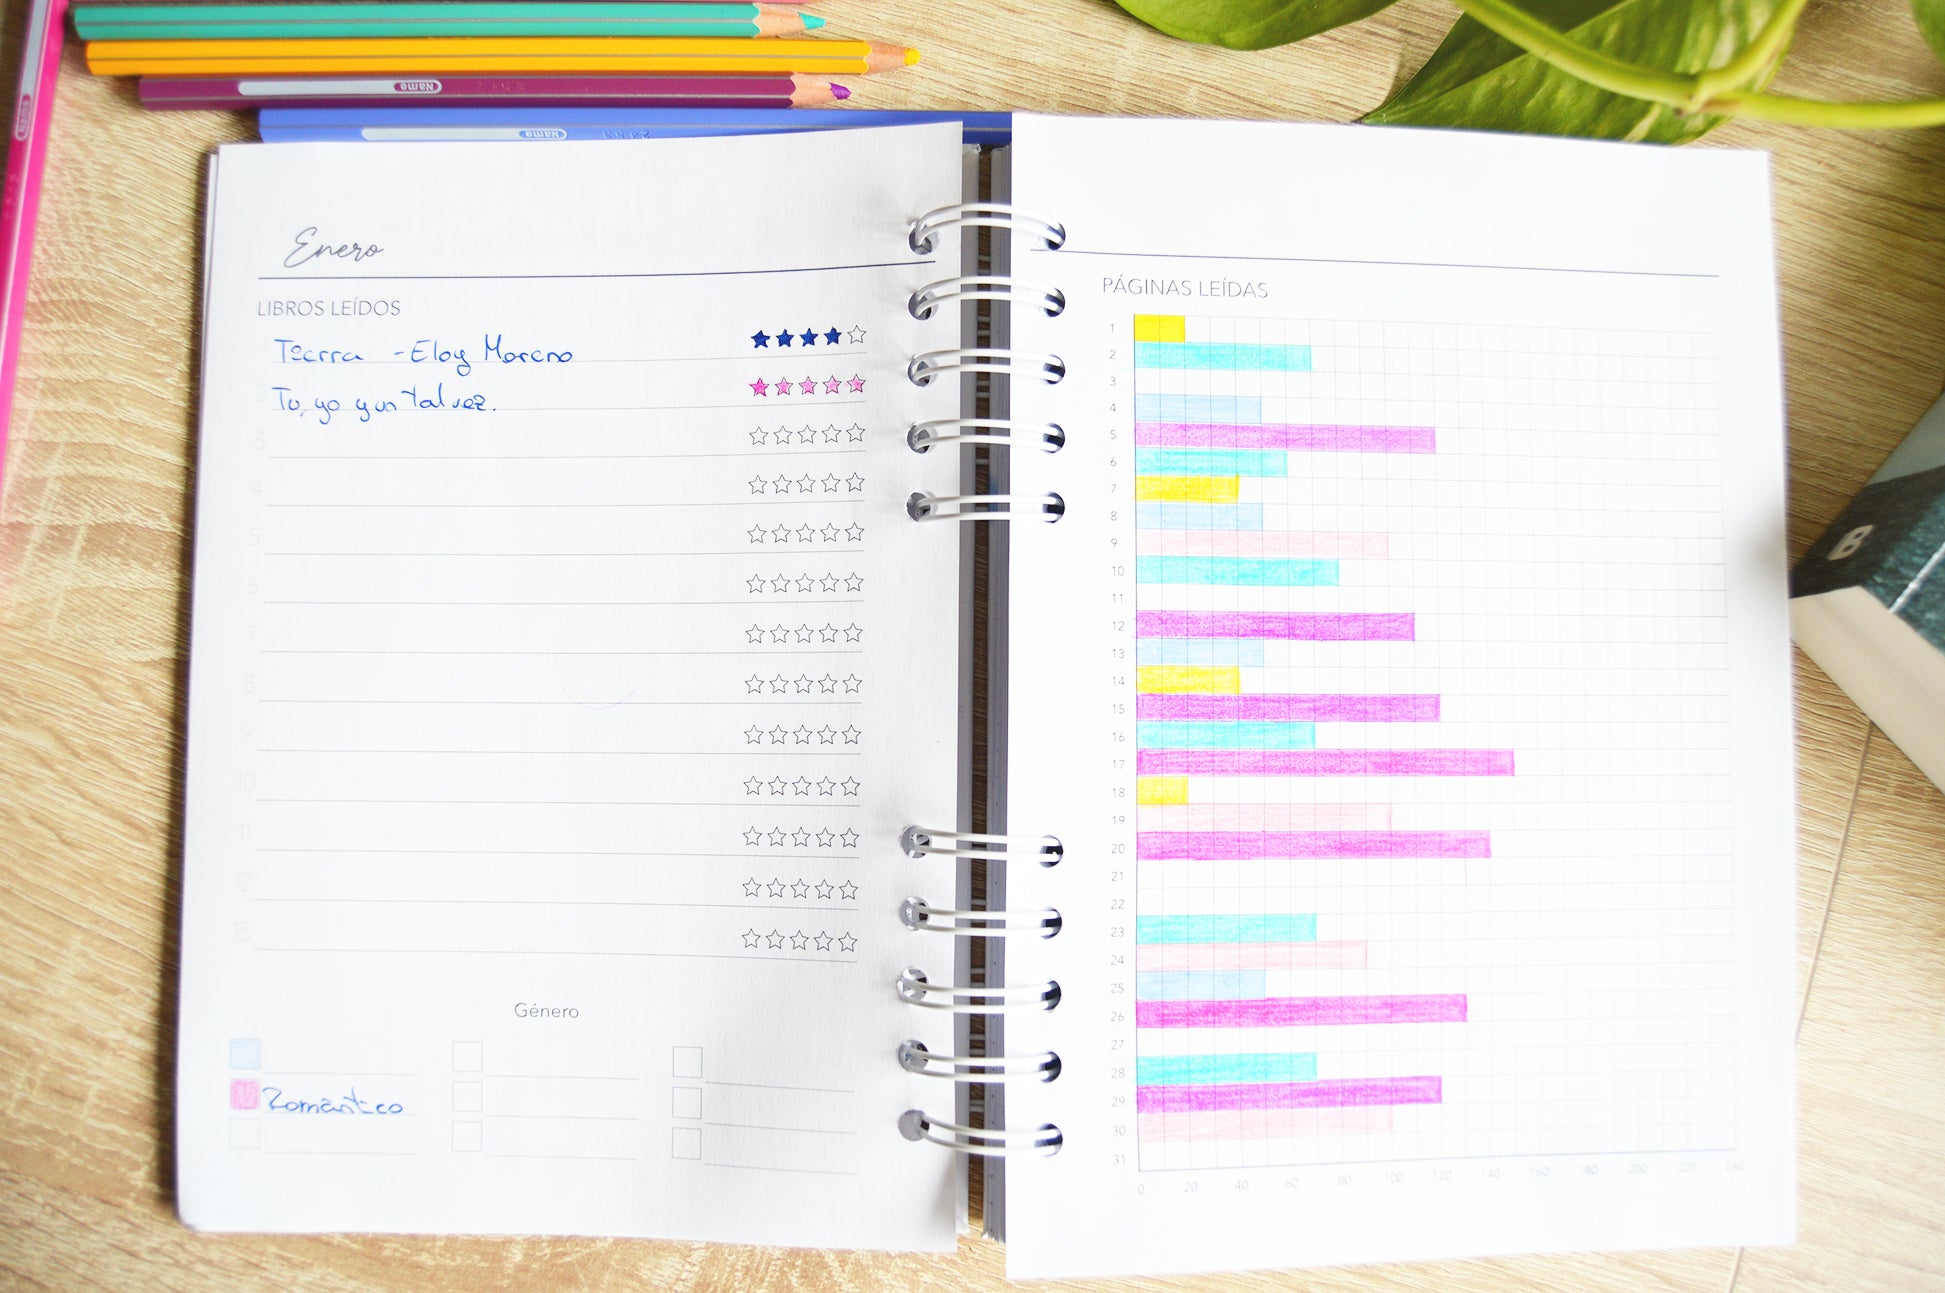 Name
Name
Enero
LIBROS LEÍDOS
1 Tierra - Eloy Moreno
2 Tu, yo y un tal vez.
3
4
5
6
7
8
9
10
11
12
13
Género
Romántico
PÁGINAS LEÍDAS
1
2
3
4
5
6
7
8
9
10
11
12
13
14
15
16
17
18
19
20
21
22
23
24
25
26
27
28
29
30
31
0 20 40 60 80 100 120 140 160 180 200 220 240
B